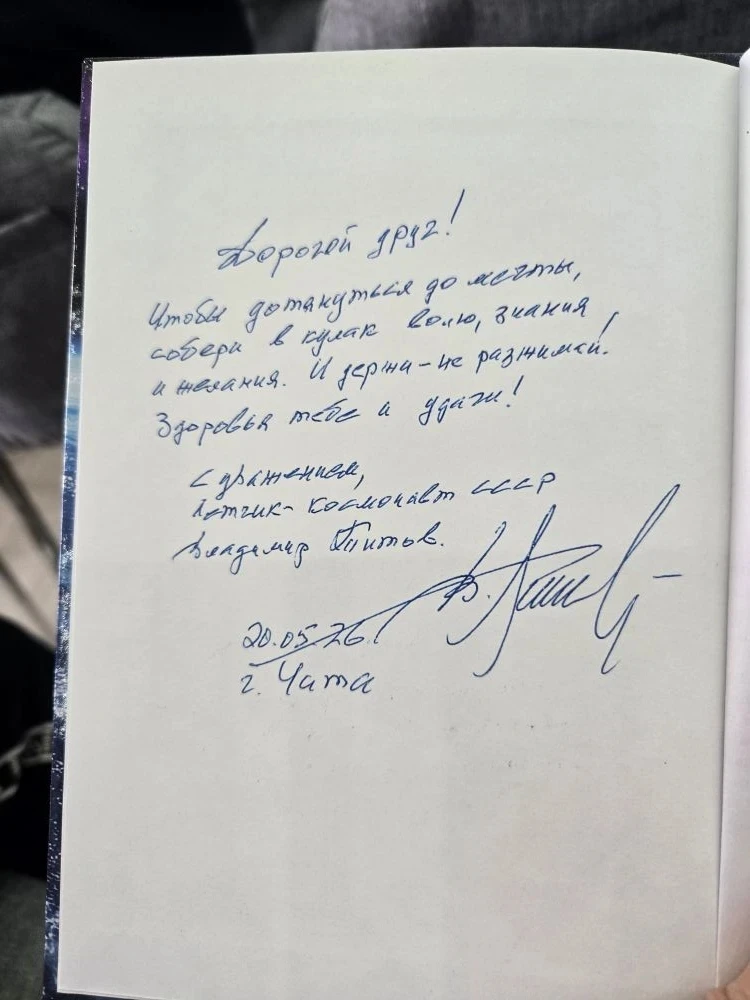 Дорогой друг!
Чтобы дотянуться до мечты,
собери в кулак волю, знания
и желания. И держи – не разжимай!
Здоровья тебе и удачи!
С уважением,
Летчик-космонавт СССР
Владимир Титов.
20.05.26.
г. Чита